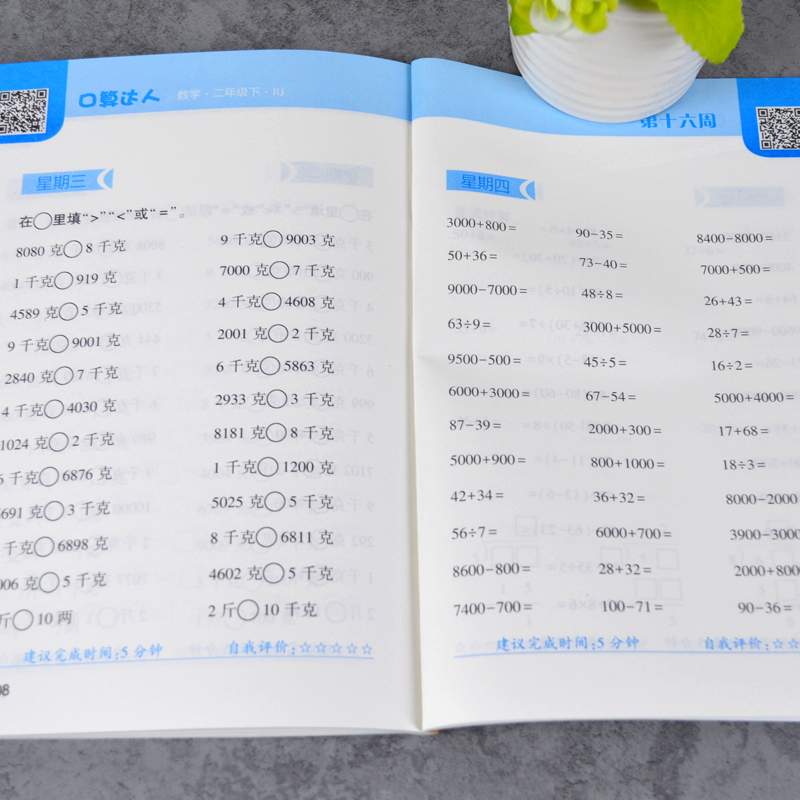 口算达人 数学·二年级下·RJ
星期三
在○里填“>”“<”或“=”。
8080 克○8 千克 9 千克○9003 克
1 千克○919 克 7000 克○7 千克
4589 克○5 千克 4 千克○4608 克
9 千克○9001 克 2001 克○2 千克
2840 克○7 千克 6 千克○5863 克
4 千克○4030 克 2933 克○3 千克
1024 克○2 千克 8181 克○8 千克
千克○6876 克 1 千克○1200 克
691 克○3 千克 5025 克○5 千克
千克○6898 克 8 千克○6811 克
006 克○5 千克 4602 克○5 千克
斤○10 两 2 斤○10 千克
建议完成时间:5 分钟 自我评价:☆☆☆☆☆
第十六周
星期四
3000+800= 90-35= 8400-8000=
50+36= 73-40= 7000+500=
9000-7000= 48÷8= 26+43=
63÷9= 3000+5000= 28÷7=
9500-500= 45÷5= 16÷2=
6000+3000= 67-54= 5000+4000=
87-39= 2000+300= 17+68=
5000+900= 800+1000= 18÷3=
42+34= 36+32= 8000-2000
56÷7= 6000+700= 3900-3000
8600-800= 28+32= 2000+8000
7400-700= 100-71= 90-36=
建议完成时间:5 分钟 自我评价:☆☆☆☆